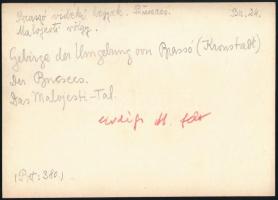 Brassó vidéki hegyek. Bucsecs. Br. 24.
Malojesti völgy.
Gebirge der Umgebung von Brassó (Kronstadt)
Der Bucsecs.
Das Malojesti-Tal.
Erdélyi M. fotó
(P.H: 380.)